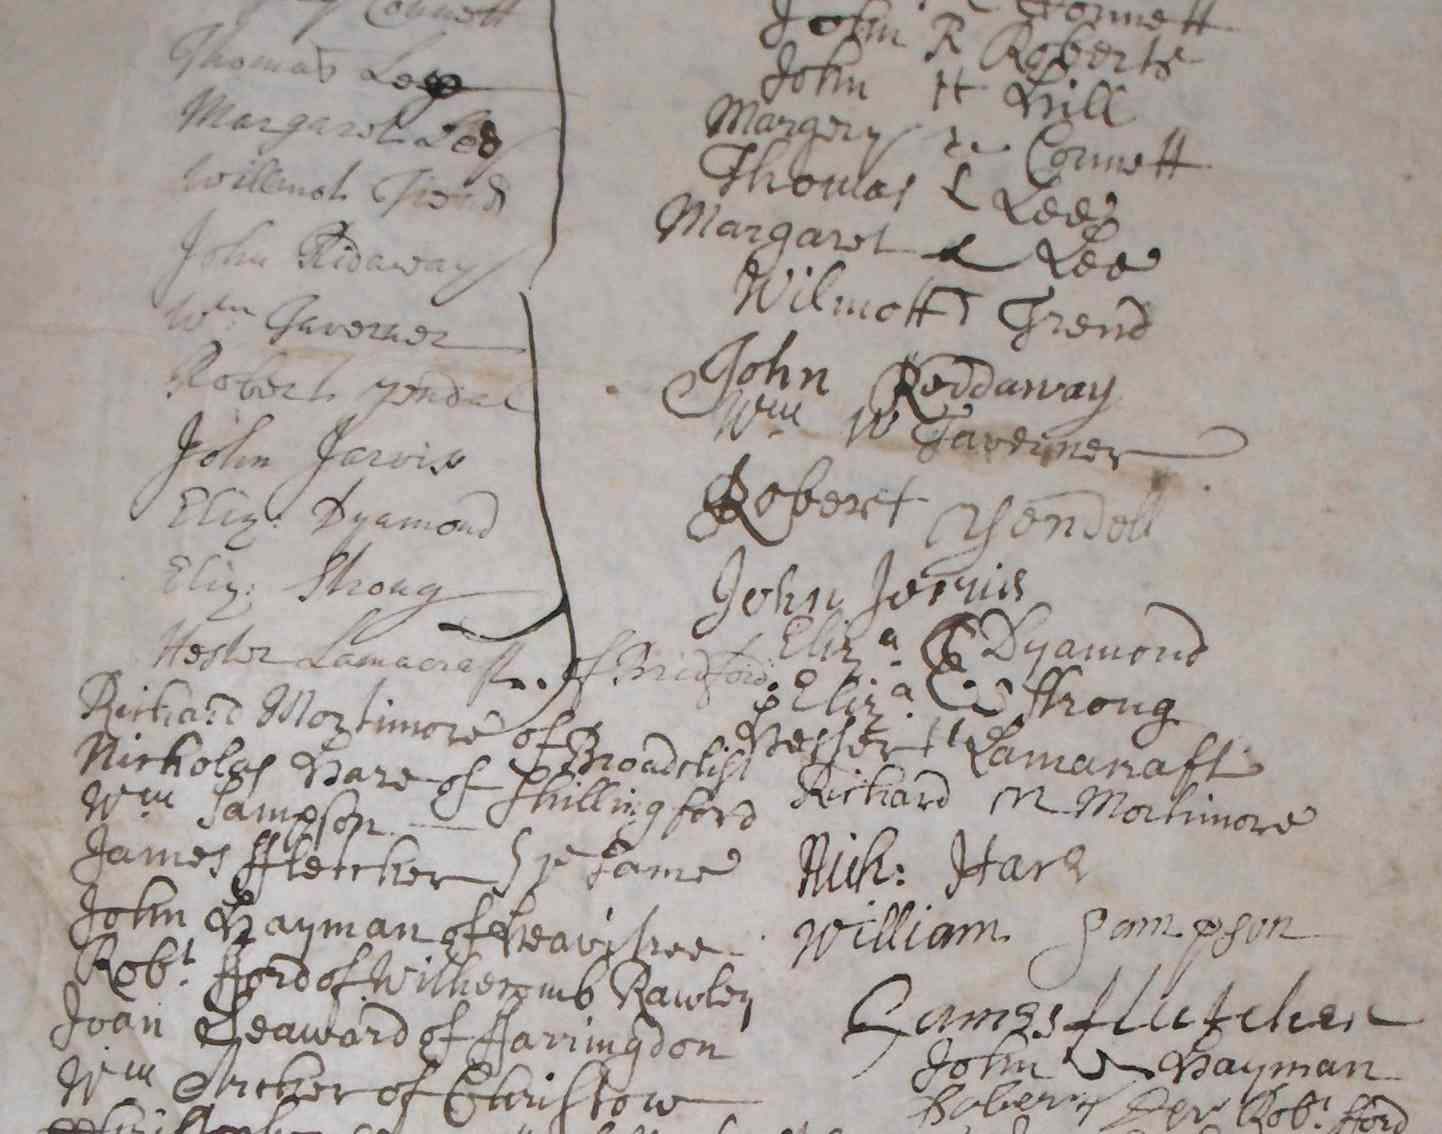 Connett
Thomas Lee
Margaret Lee
Willmot Trend
John Ridaway
Wm Taverner
Robert yendal
John Jarvis
Eliz: Dyamond
Eliz: Strong
Hester Lamacraft of Bridford
Richard Mortimore of Broadclist
Nicholas Hare of Shillingford
Wm Sampson
James ffletcher ye same
John Hayman of heavitree
Robt fford of Withecomb Rawley
Joan Seaward of ffarringdon
Wm Archer of Christow
Connett
John R Roberts
John H Hill
Margery Connett
Thomas L Lee
Margaret Lee
Wilmott Trend
John Reddaway
Wm W Taverner
Robert Yendell
John Jervis
Eliza E Dyamond
Eliza E Strong
Hester H Lamacraft
Richard M Mortimore
Nich: Hare
William Sampson
James flutcher
John Hayman
Robt fford